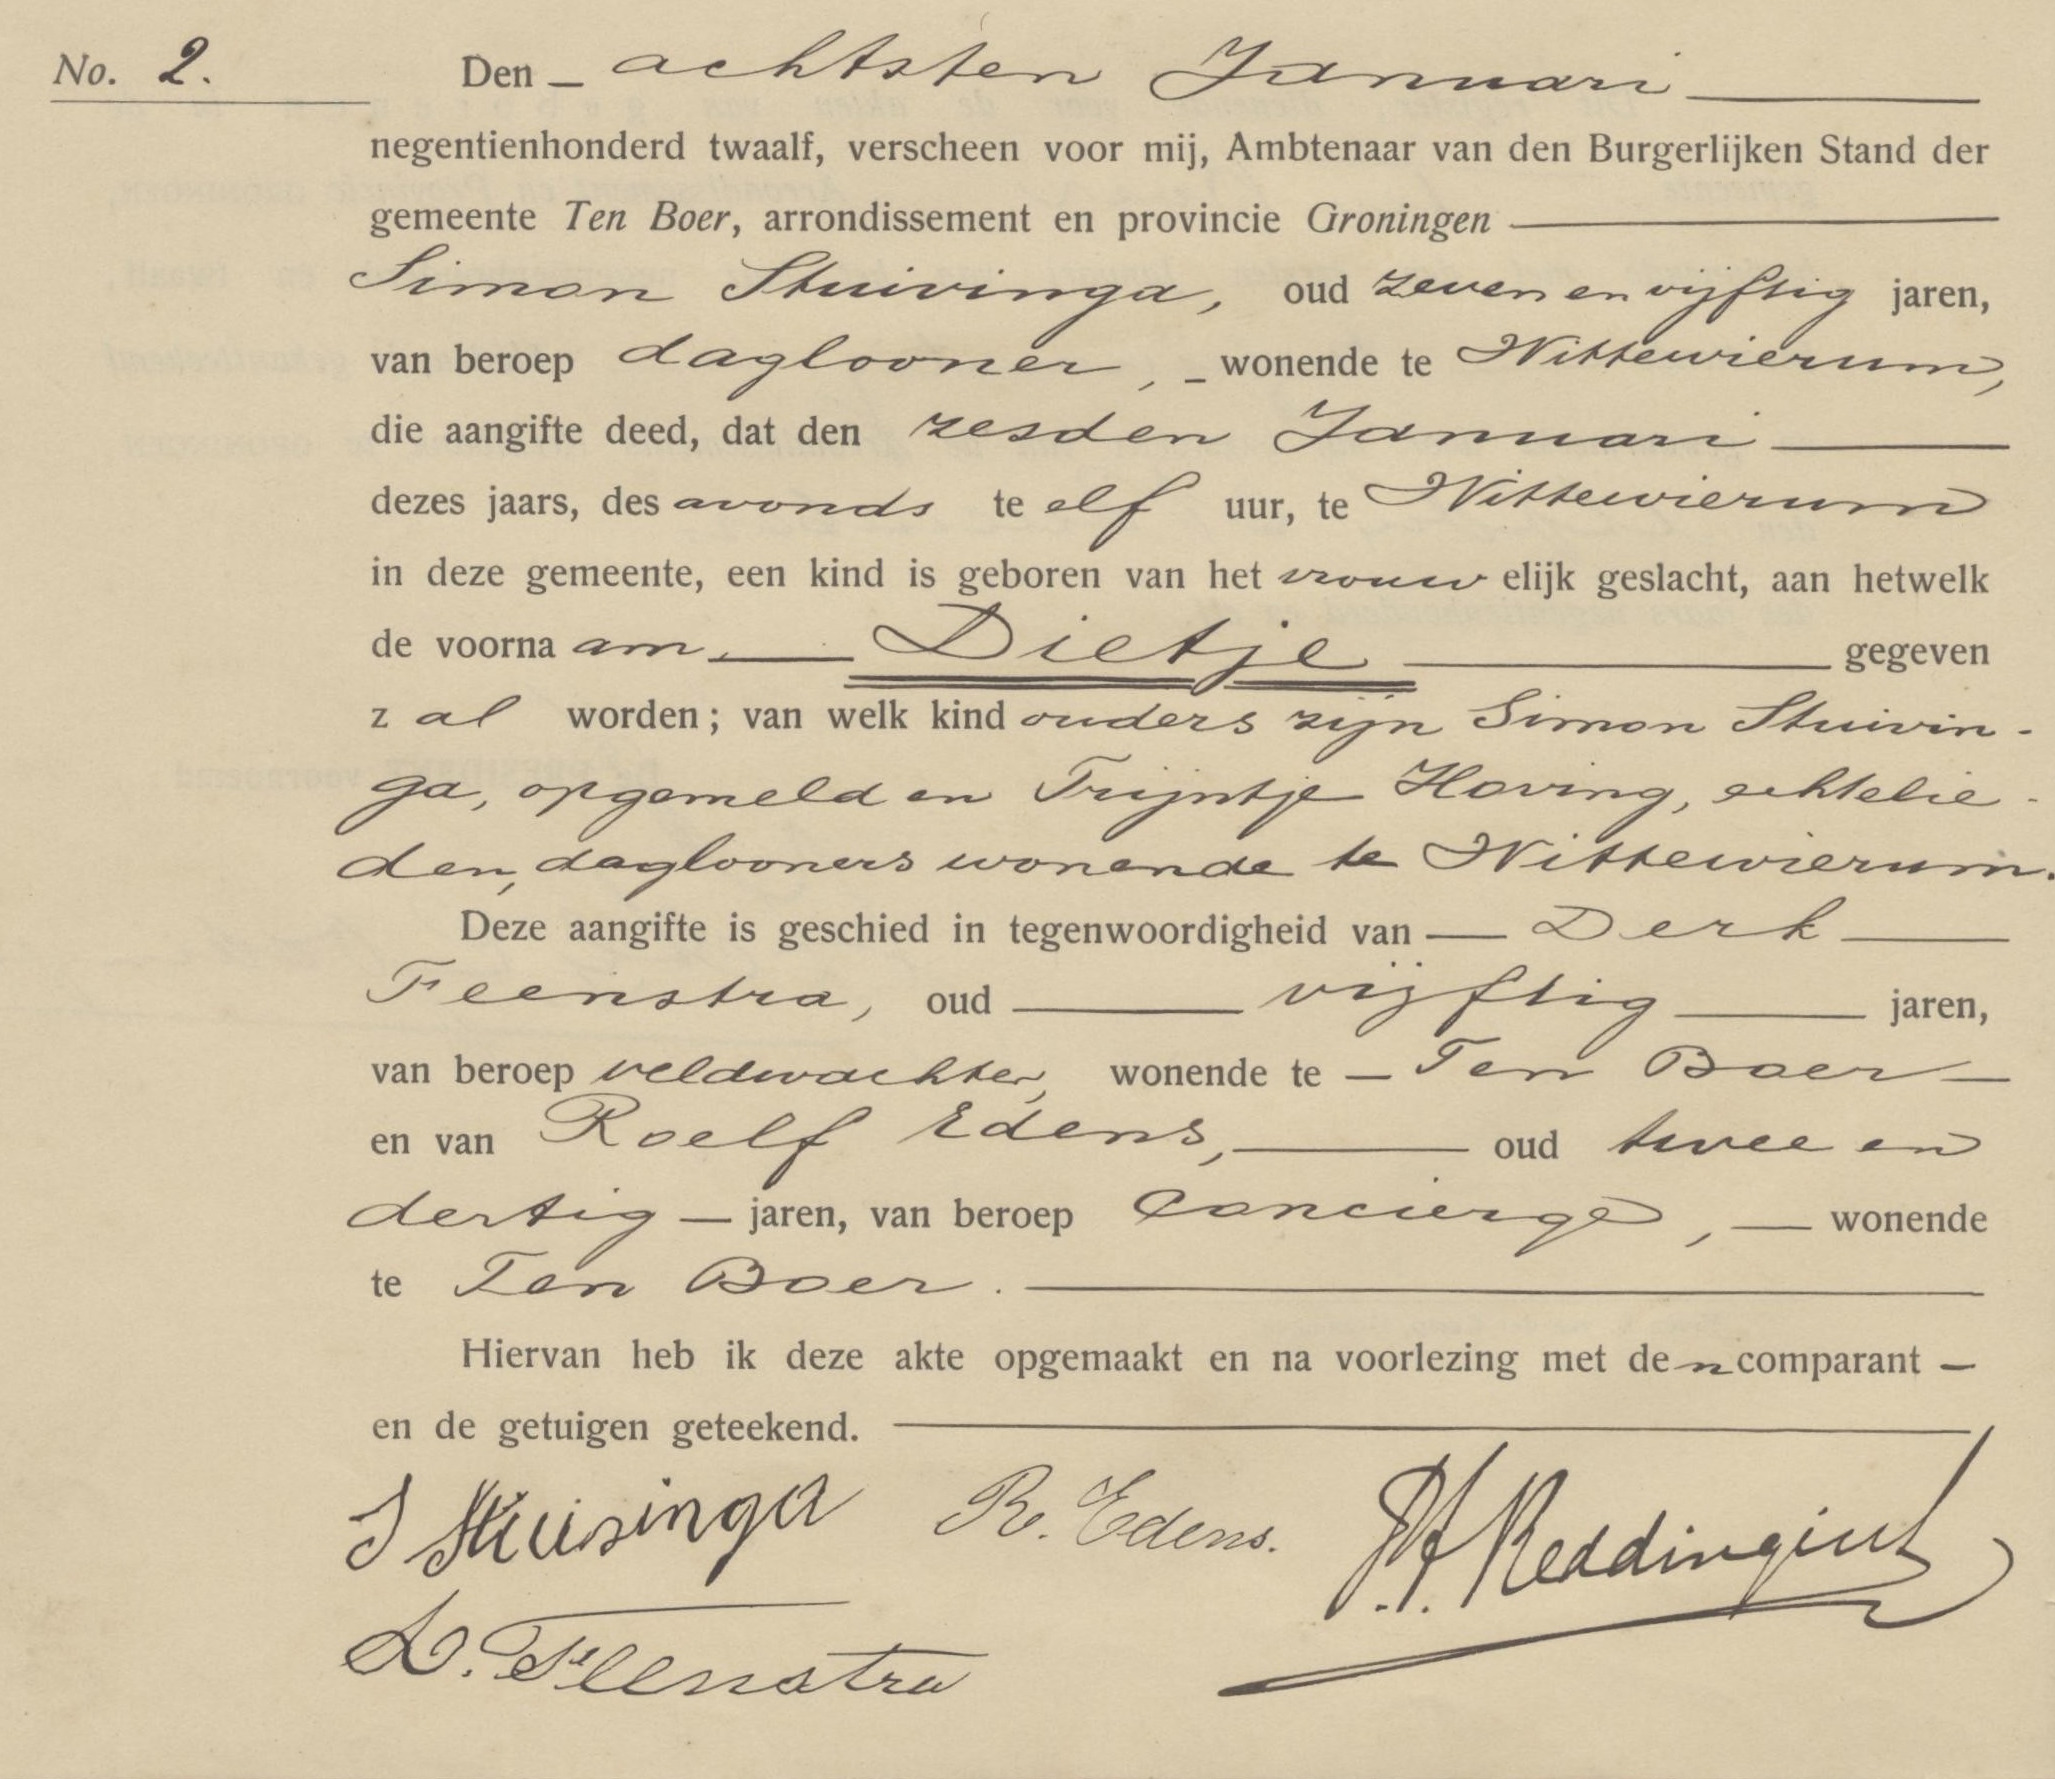 No. 2. Den achtsten Januari
negentienhonderd twaalf, verscheen voor mij, Ambtenaar van den Burgerlijken Stand der
gemeente Ten Boer, arrondissement en provincie Groningen
Simon Stuivinga, oud zeven en vijftig jaren,
van beroep daglooner, wonende te Wittewierum,
die aangifte deed, dat den zesden Januari
dezes jaars, des avonds te elf uur, te Wittewierum
in deze gemeente, een kind is geboren van het vrouwelijk geslacht, aan hetwelk
de voornaam Dietje gegeven
zal worden; van welk kind ouders zijn Simon Stuivin-
ga, opgemeld en Trijntje Hoving, echtelie-
den, daglooners wonende te Wittewierum.
Deze aangifte is geschied in tegenwoordigheid van Derk
Feenstra, oud vijftig jaren,
van beroep veldwachter, wonende te Ten Boer
en van Roelf Edens, oud twee en
dertig jaren, van beroep Concierge, wonende
te Ten Boer.
Hiervan heb ik deze akte opgemaakt en na voorlezing met den comparant
en de getuigen geteekend.
S Stuivinga R. Edens. Reddingius
D. Feenstra